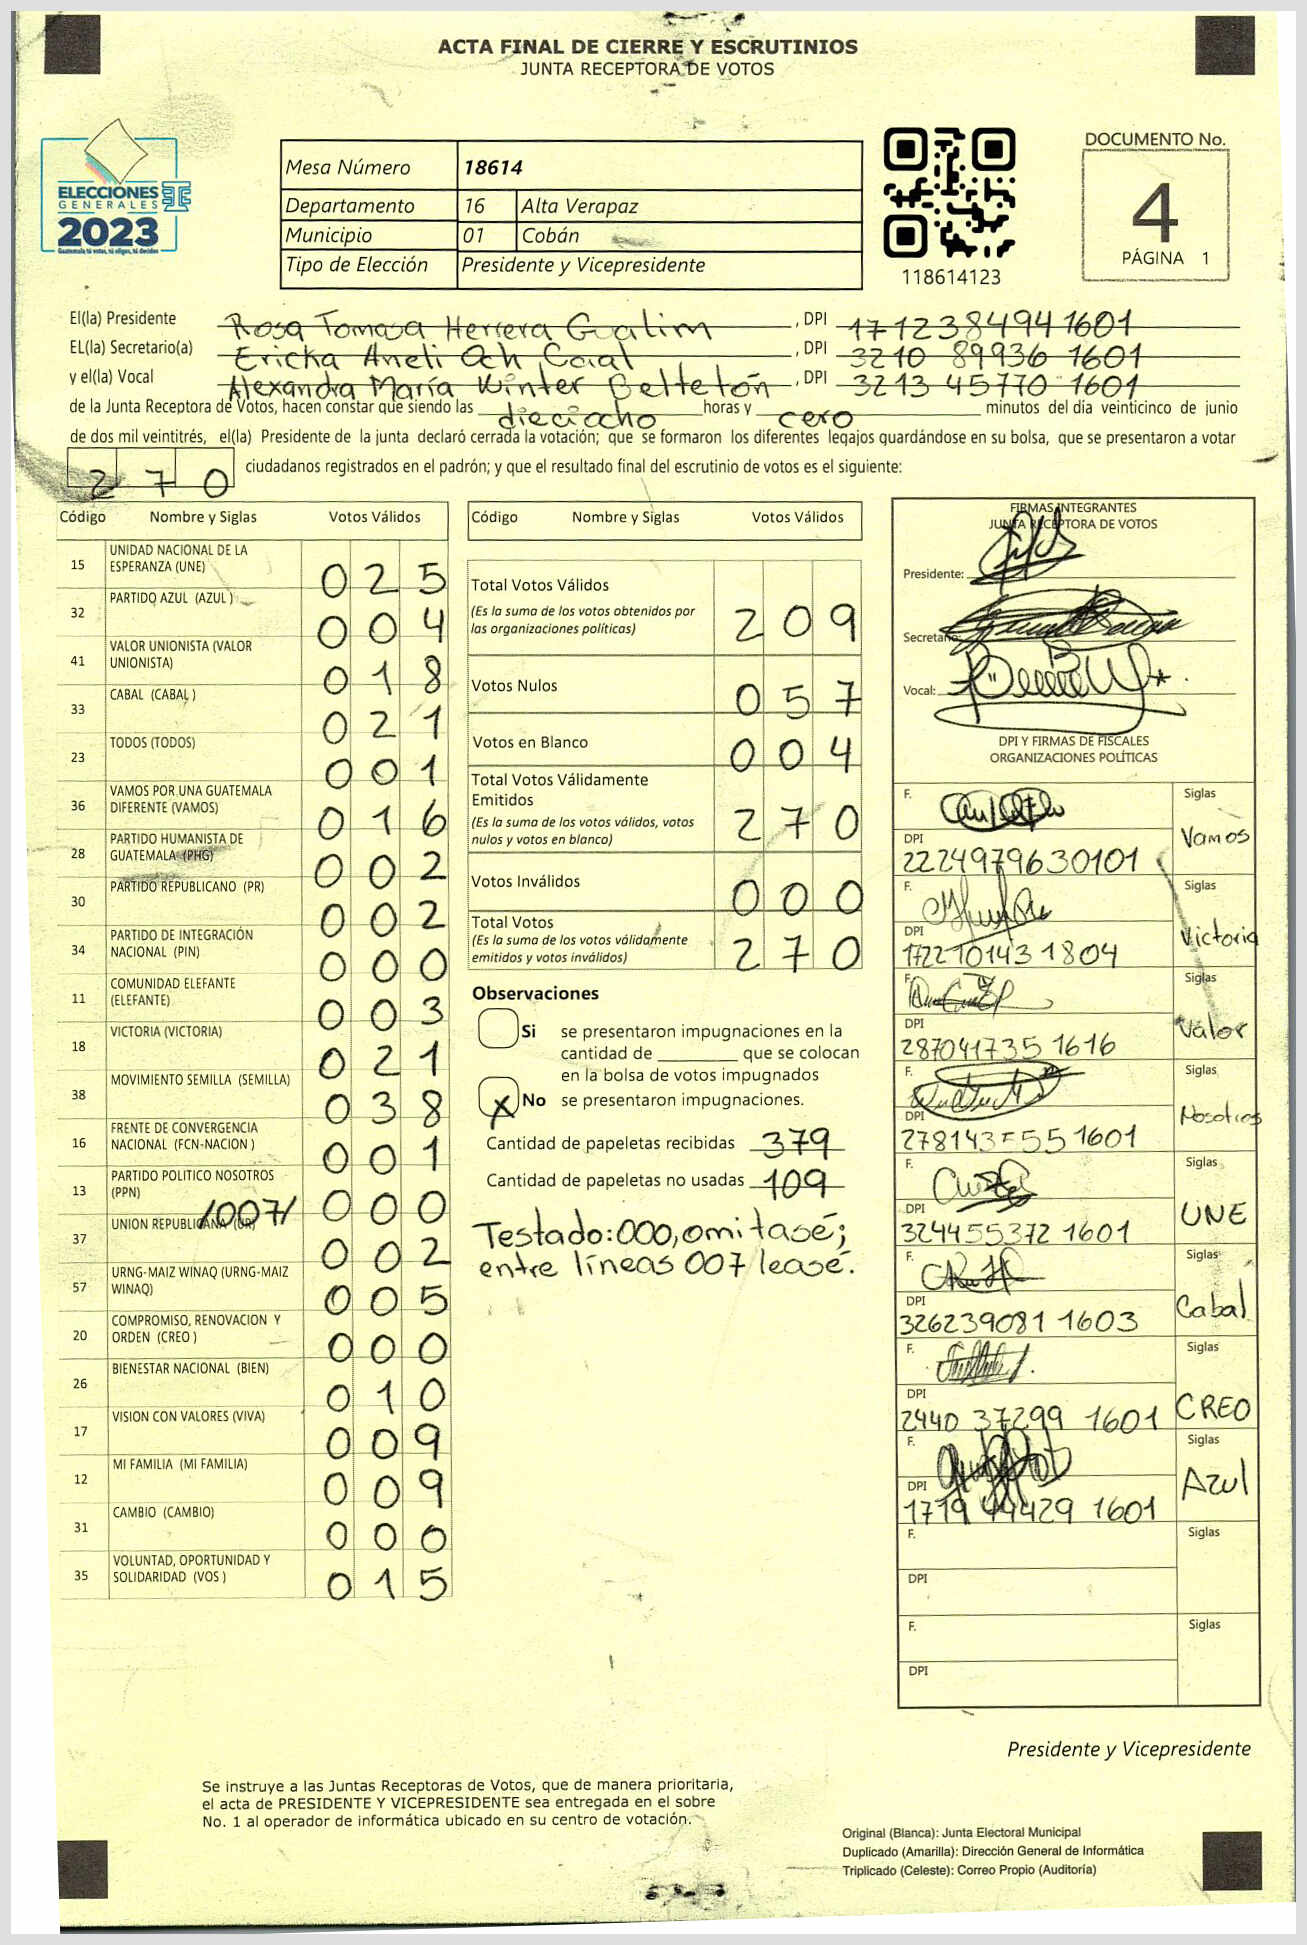 ACTA FINAL DE CIERRE Y ESCRUTINIOS
JUNTA RECEPTORA DE VOTOS
ELECCIONES
GENERALES
2023
Guatemala tú votas, tú eliges, tú decides
Mesa Número 18614
Departamento 16 Alta Verapaz
Municipio 01 Cobán
Tipo de Elección Presidente y Vicepresidente
118614123
DOCUMENTO No.
4
PÁGINA 1
El(la) Presidente Rosa Tomasa Herrera Gualim, DPI 171238494 1601
EL(la) Secretario(a) Ericka Aneli Och Caal, DPI 3210 89936 1601
y el(la) Vocal Alexandra María Winter Belteton, DPI 3213 45770 1601
de la Junta Receptora de Votos, hacen constar que siendo las dieciocho horas y cero minutos del día veinticinco de junio
de dos mil veintitrés, el(la) Presidente de la junta declaró cerrada la votación; que se formaron los diferentes legajos guardándose en su bolsa, que se presentaron a votar
270 ciudadanos registrados en el padrón; y que el resultado final del escrutinio de votos es el siguiente:
Código Nombre y Siglas Votos Válidos
15 UNIDAD NACIONAL DE LA
ESPERANZA (UNE) 025
32 PARTIDO AZUL (AZUL ) 004
41 VALOR UNIONISTA (VALOR
UNIONISTA) 018
33 CABAL (CABAL ) 021
23 TODOS (TODOS) 001
36 VAMOS POR UNA GUATEMALA
DIFERENTE (VAMOS) 016
28 PARTIDO HUMANISTA DE
GUATEMALA (PHG) 002
30 PARTIDO REPUBLICANO (PR) 002
34 PARTIDO DE INTEGRACIÓN
NACIONAL (PIN) 000
11 COMUNIDAD ELEFANTE
(ELEFANTE) 003
18 VICTORIA (VICTORIA) 021
38 MOVIMIENTO SEMILLA (SEMILLA) 038
16 FRENTE DE CONVERGENCIA
NACIONAL (FCN-NACION ) 001
13 PARTIDO POLITICO NOSOTROS
(PPN) /007/ 000
37 UNION REPUBLICANA (UR) 002
57 URNG-MAIZ WINAQ (URNG-MAIZ
WINAQ) 005
20 COMPROMISO, RENOVACION Y
ORDEN (CREO ) 000
26 BIENESTAR NACIONAL (BIEN) 010
17 VISION CON VALORES (VIVA) 009
12 MI FAMILIA (MI FAMILIA) 009
31 CAMBIO (CAMBIO) 000
35 VOLUNTAD, OPORTUNIDAD Y
SOLIDARIDAD (VOS ) 015
Código Nombre y Siglas Votos Válidos
Total Votos Válidos
(Es la suma de los votos obtenidos por
las organizaciones políticas) 209
Votos Nulos 057
Votos en Blanco 004
Total Votos Válidamente
Emitidos
(Es la suma de los votos válidos, votos
nulos y votos en blanco) 270
Votos Inválidos 000
Total Votos
(Es la suma de los votos válidamente
emitidos y votos inválidos) 270
Observaciones
Si se presentaron impugnaciones en la
cantidad de ________ que se colocan
en la bolsa de votos impugnados
X No se presentaron impugnaciones.
Cantidad de papeletas recibidas 379
Cantidad de papeletas no usadas 109
Testado: 000, omitasé;
entre líneas 007 lease.
FIRMAS INTEGRANTES
JUNTA RECEPTORA DE VOTOS
Presidente:
Secretario:
Vocal:
DPI Y FIRMAS DE FISCALES
ORGANIZACIONES POLÍTICAS
F. Siglas
Vamos
DPI
2224979630101
F. Siglas
Victoria
DPI
172210143 1804
F. Siglas
Valor
DPI
287041735 1616
F. Siglas
Nosotros
DPI
278143555 1601
F. Siglas
UNE
DPI
324455372 1601
F. Siglas
Cabal
DPI
326239081 1603
F. Siglas
CREO
DPI
2440 37299 1601
F. Siglas
Azul
DPI
1719 44429 1601
F. Siglas
DPI
F. Siglas
DPI
Presidente y Vicepresidente
Se instruye a las Juntas Receptoras de Votos, que de manera prioritaria,
el acta de PRESIDENTE Y VICEPRESIDENTE sea entregada en el sobre
No. 1 al operador de informática ubicado en su centro de votación.
Original (Blanca): Junta Electoral Municipal
Duplicado (Amarilla): Dirección General de Informática
Triplicado (Celeste): Correo Propio (Auditoría)